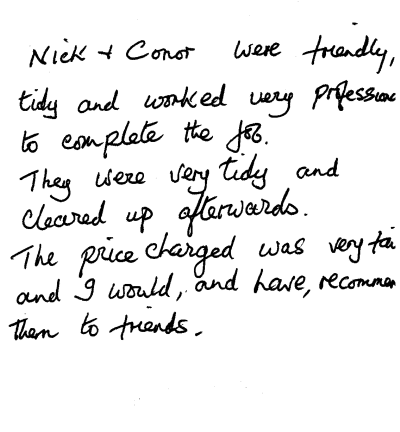 Nick + Conor were friendly,
tidy and worked very professiona
to complete the job.
They were very tidy and
cleared up afterwards.
The price charged was very fai
and I would, and have, recommen
them to friends.